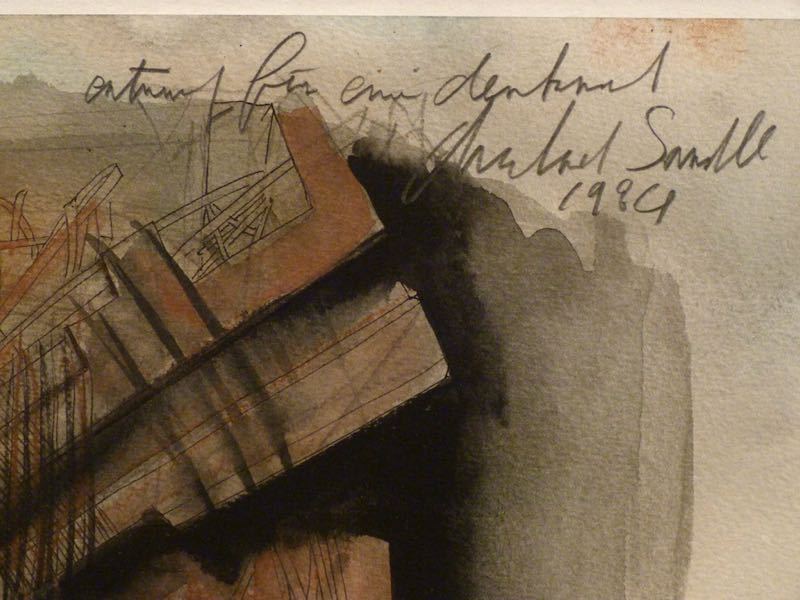 entwurf für ein denkmal
Michael Sandle
1984